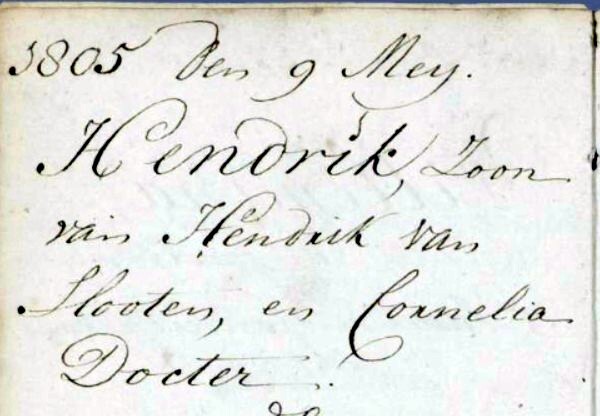 1805 Den 9 Mey.
Hendrik, Zoon
van Hendrik van
Slooten, en Cornelia
Docter.